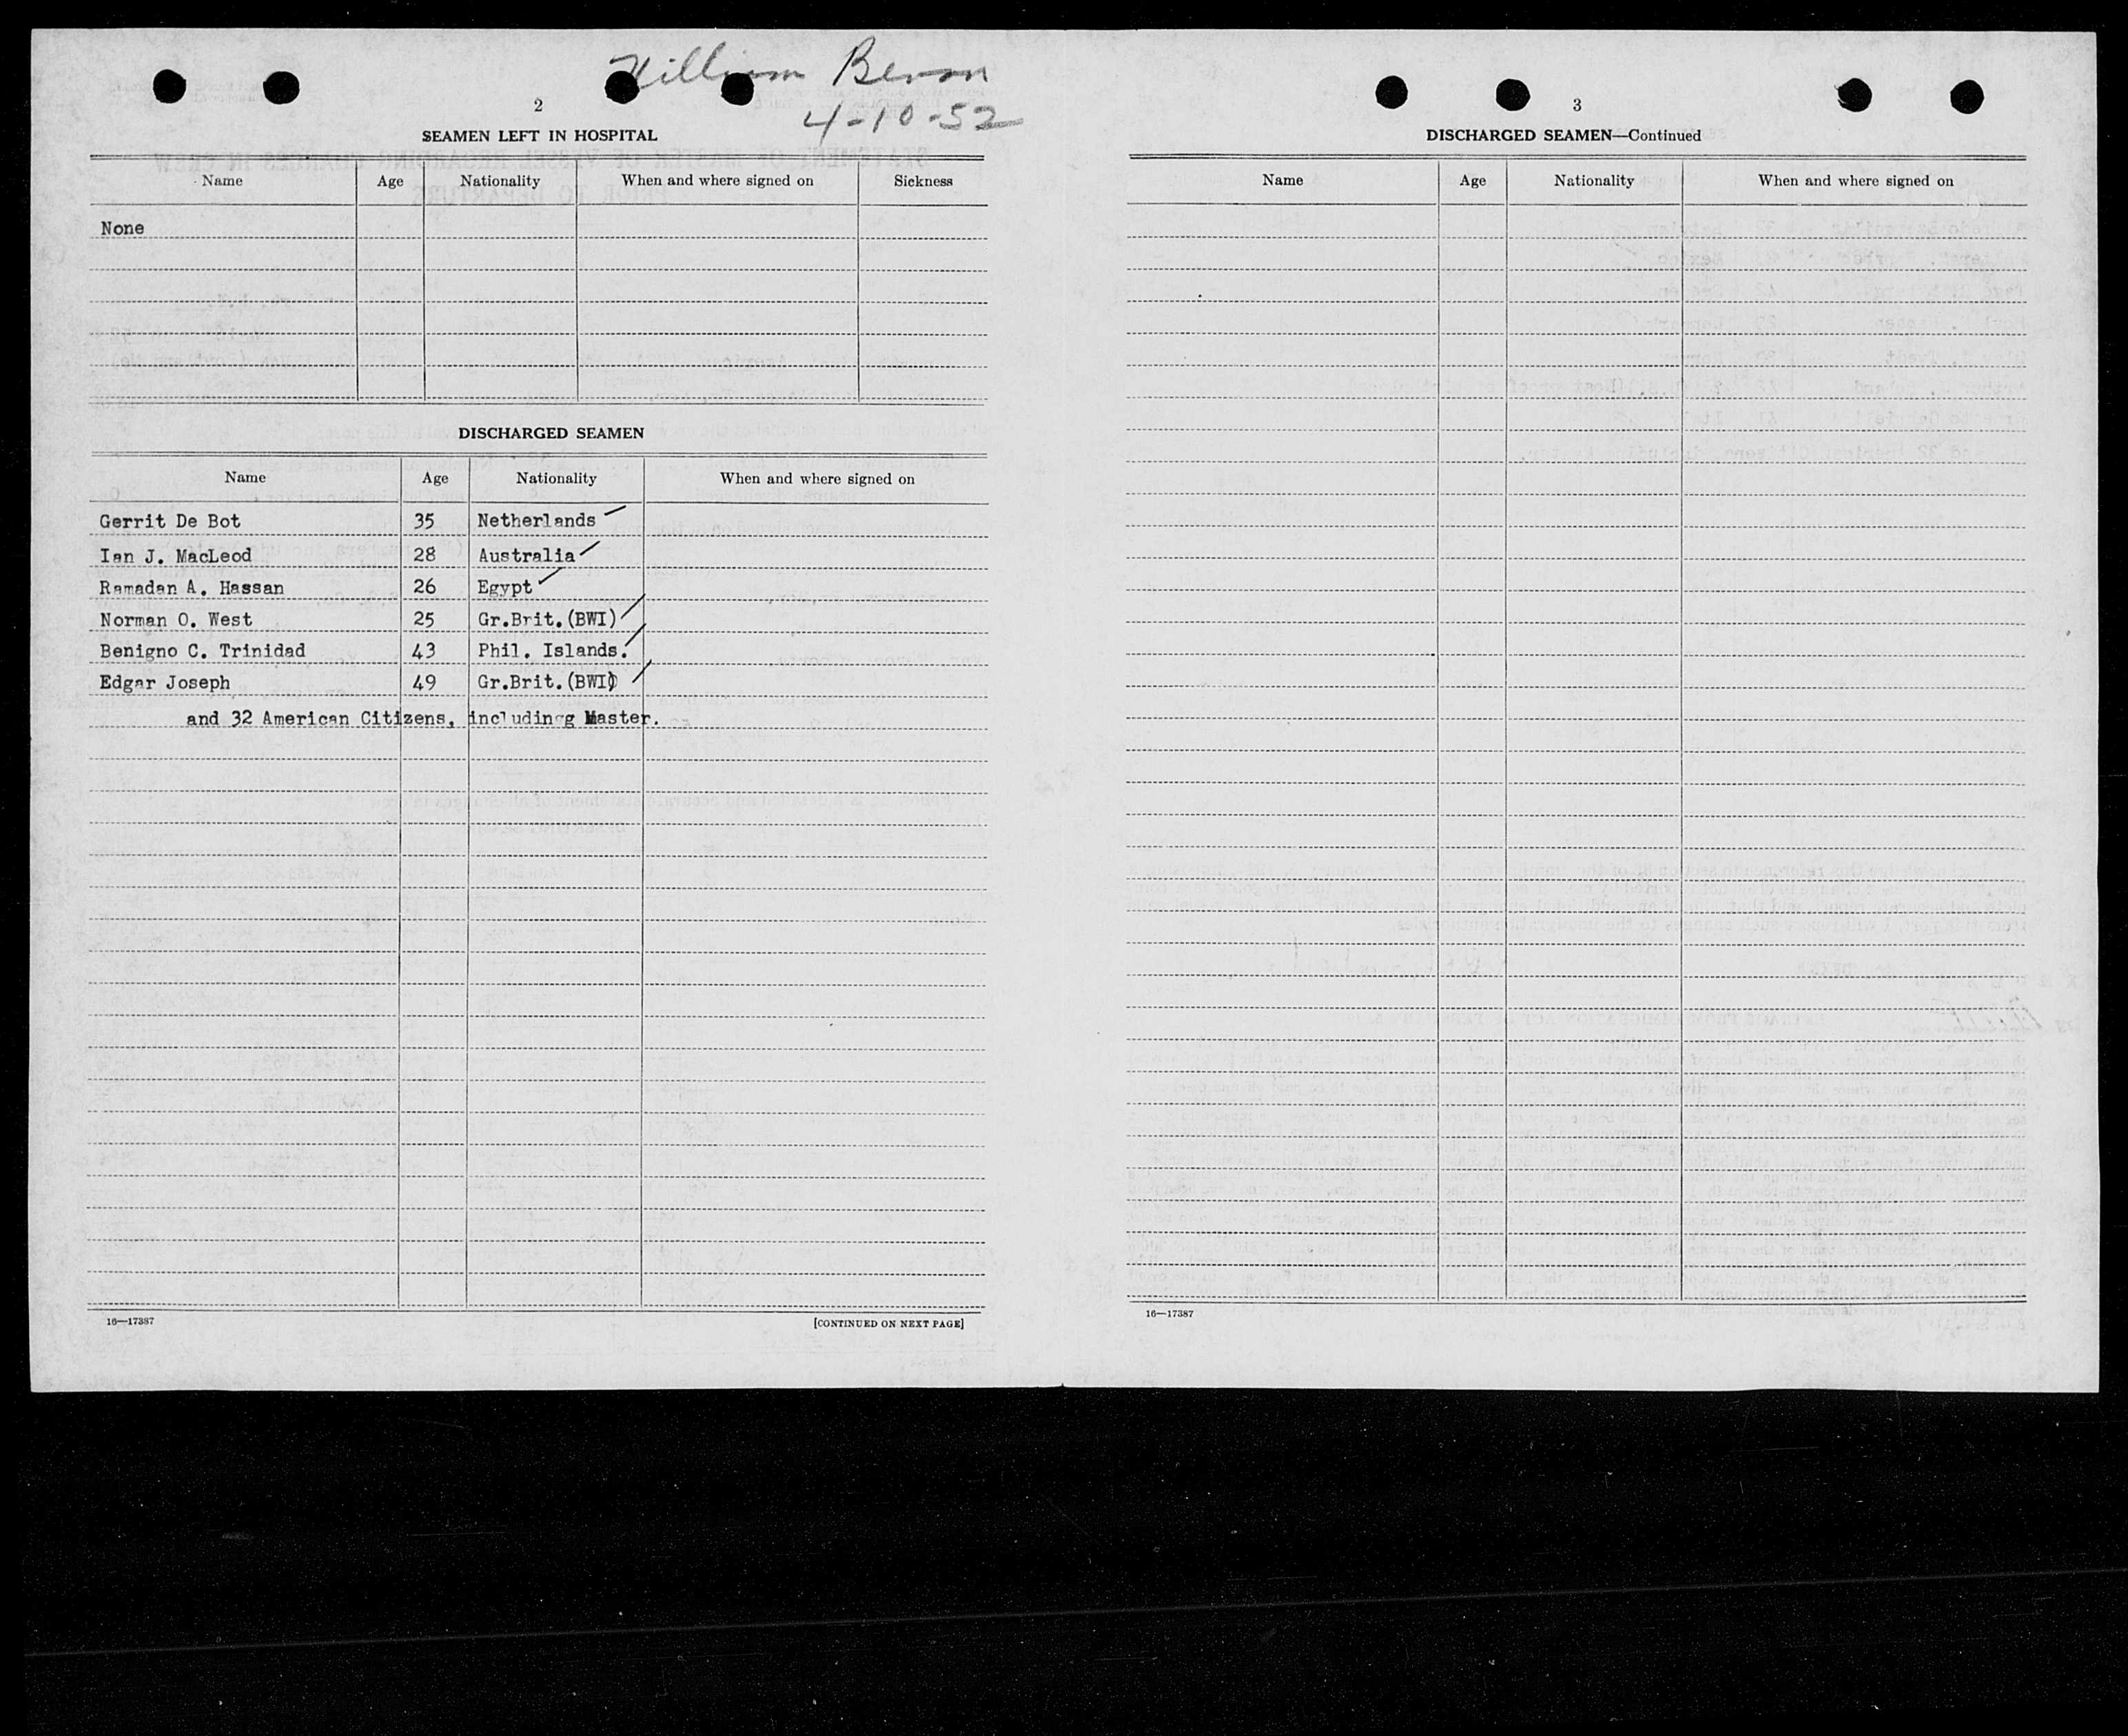 William Bevan
4-10-52
2
SEAMEN LEFT IN HOSPITAL
Name Age Nationality When and where signed on Sickness
None
DISCHARGED SEAMEN
Name Age Nationality When and where signed on
Gerrit De Bot 35 Netherlands
Ian J. MacLeod 28 Australia
Ramadan A. Hassan 26 Egypt
Norman O. West 25 Gr.Brit.(BWI)
Benigno C. Trinidad 43 Phil. Islands.
Edgar Joseph 49 Gr.Brit.(BWI)
and 32 American Citizens, including Master.
16—17387
[CONTINUED ON NEXT PAGE]
3
DISCHARGED SEAMEN—Continued
Name Age Nationality When and where signed on
16—17387